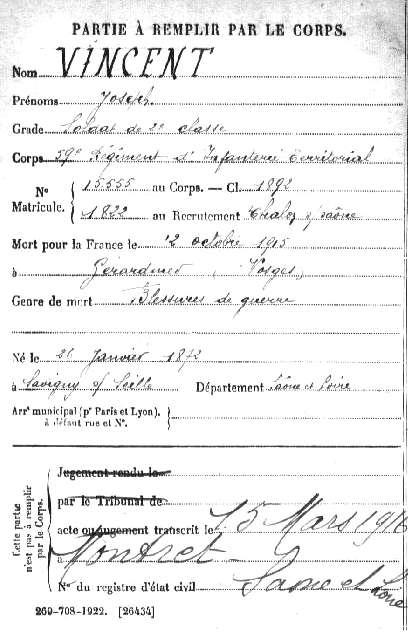 PARTIE À REMPLIR PAR LE CORPS.
Nom VINCENT
Prénoms Joseph
Grade Soldat de 2e classe
Corps 59e Régiment d'Infanterie Territorial
No Matricule. { 15555 au Corps. — Cl. 1892
1822 au Recrutement Chalon s/ Saône
Mort pour la France le 12 octobre 1915
à Gérardmer (Vosges)
Genre de mort Blessures de guerre
Né le 26 Janvier 1872
à Savigny s/ Seille Département Saône et Loire
Arrt municipal (pr Paris et Lyon), à défaut rue et No.
Cette partie n'est pas à remplir par le Corps.
Jugement rendu le
par le Tribunal de
acte ou jugement transcrit le 15 Mars 1916
à Montret
No du registre d'état civil Saone et Loire
269-708-1922. [26434]